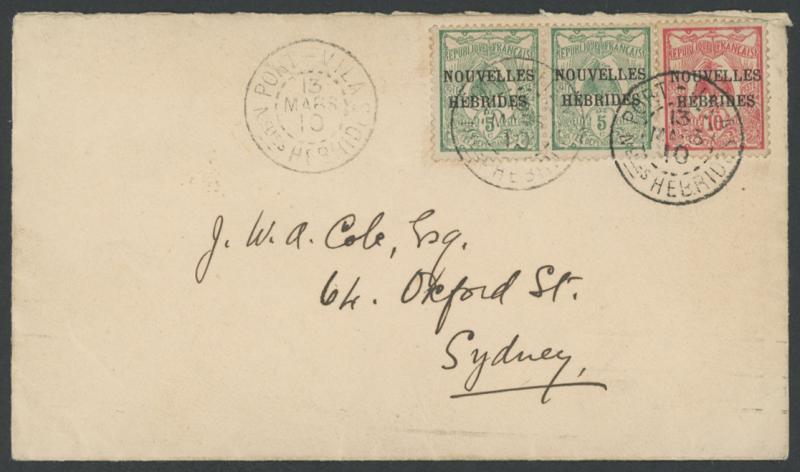 PORT-VILA
13
MARS
10
Nles HEBRIDES
REPUBLIQUE FRANÇAISE
NOUVELLES
HÉBRIDES
5
REPUBLIQUE FRANÇAISE
NOUVELLES
HÉBRIDES
5
REPUBLIQUE FRANÇAISE
NOUVELLES
HÉBRIDES
10
PORT
13
MARS
10
Nles HEBRIDES
J. W. A. Cole, Esq.
64. Oxford St.
Sydney,